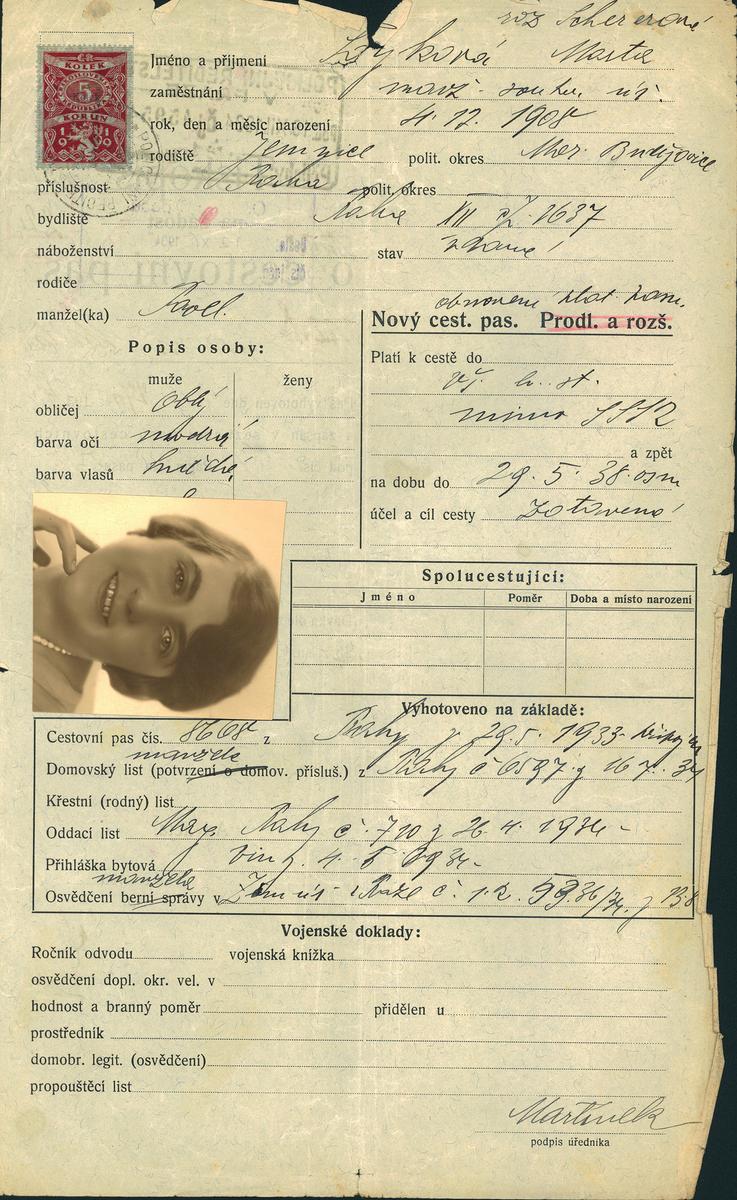 roz Schererová
KOLEK
5
KORUN
1919
Jméno a příjmení Marta
zaměstnání manž. soukr. úř.
rok, den a měsíc narození 4. 12. 1908
rodiště Jemnice polit. okres Mor. Budějovice
příslušnost Praha polit. okres
bydliště Praha XII čp. 1637
náboženství stav vdaná
rodiče
manžel(ka) Karel
obnovení
Nový cest. pas. Prodl. a rozš.
Popis osoby:
muže ženy
obličej oblý
barva očí modrá
barva vlasů hnědá
Platí k cestě do
vš. st.
mimo SSSR
a zpět
na dobu do 29. 5. 38
účel a cíl cesty zotavená
Spolucestující:
Jméno Poměr Doba a místo narození
Vyhotoveno na základě:
Cestovní pas čís. 8608 z Prahy z 29. 5. 1933
manžela
Domovský list (potvrzení o domov. přísluš.) z Prahy č 6597 z 16 7. 34
Křestní (rodný) list
Oddací list Mag. Prahy č. 710 z 26. 4. 1934
Přihláška bytová 4. 5. 1934
manžela
Osvědčení berní správy v Zem úř. v Praze č. 12
Vojenské doklady:
Ročník odvodu vojenská knížka
osvědčení dopl. okr. vel. v
hodnost a branný poměr přidělen u
prostředník
domobr. legit. (osvědčení)
propouštěcí list
Martinek
podpis úředníka